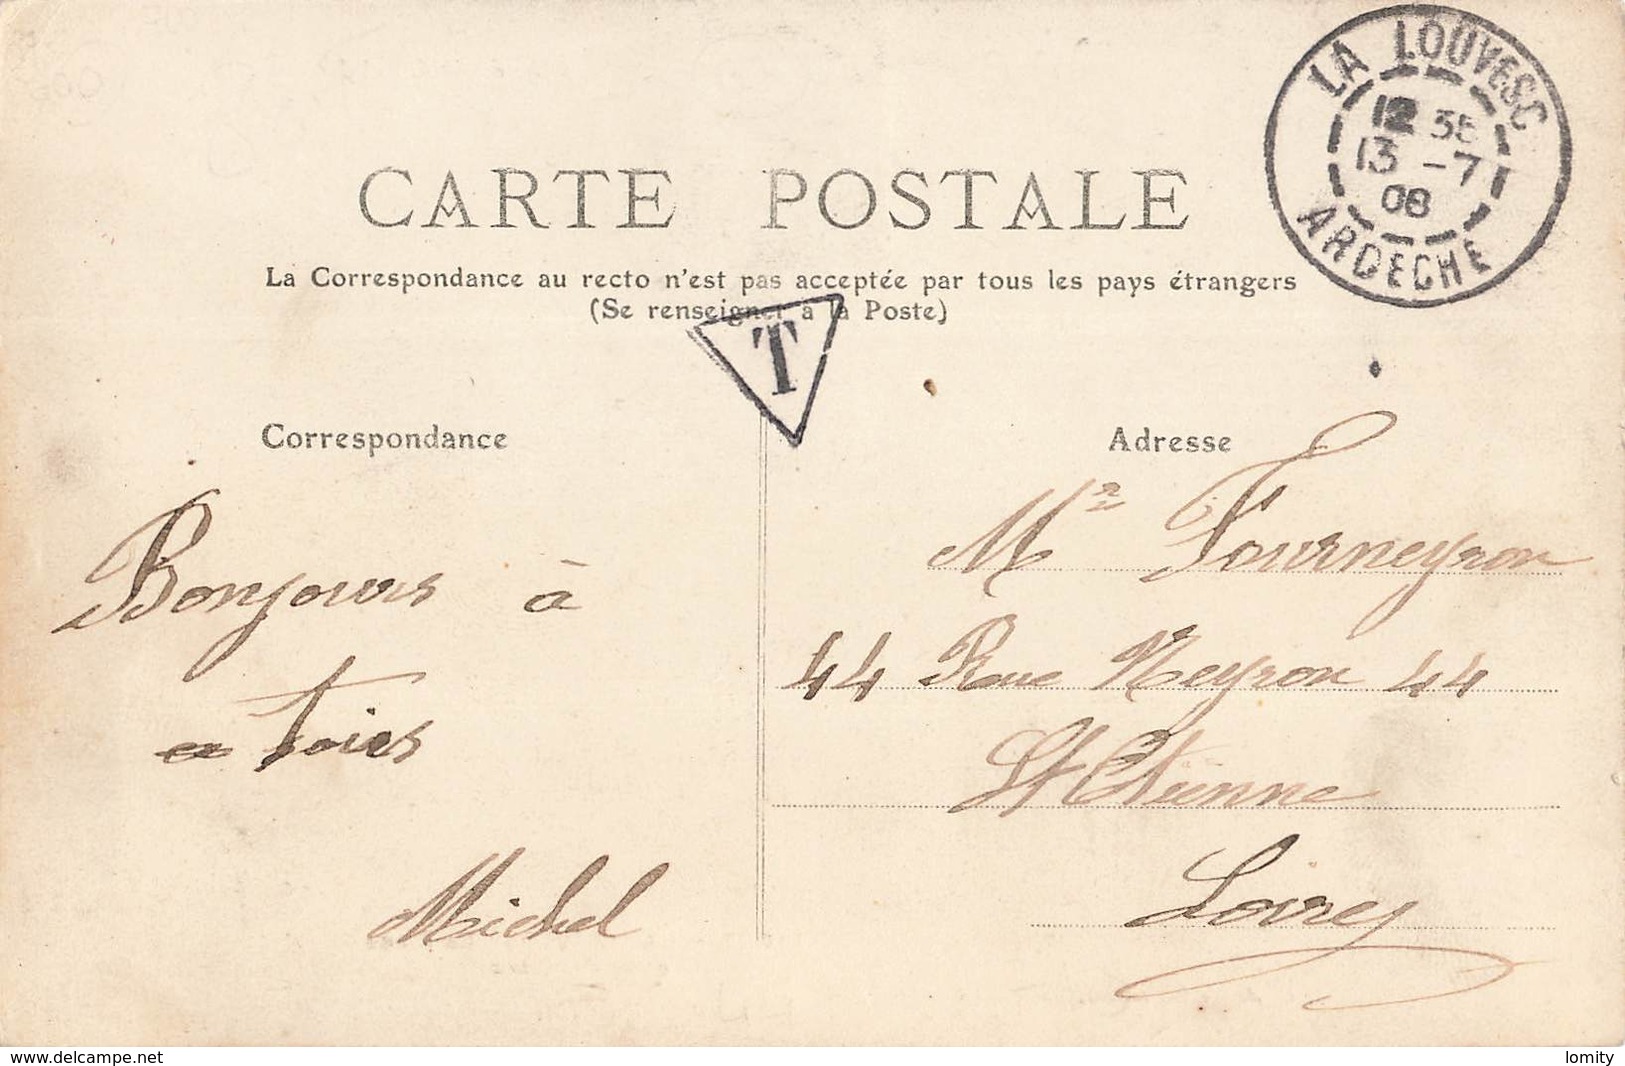 LA LOUVESC
12 35
13 -7
08
ARDECHE
CARTE POSTALE
La Correspondance au recto n'est pas acceptée par tous les pays étrangers
(Se renseigner à la Poste)
T
Correspondance
Bonjours à
toies
Michel
Adresse
Mr Fourneyron
44 Rue Neyron 44
St Etienne
Loire
www.delcampe.net
lomity